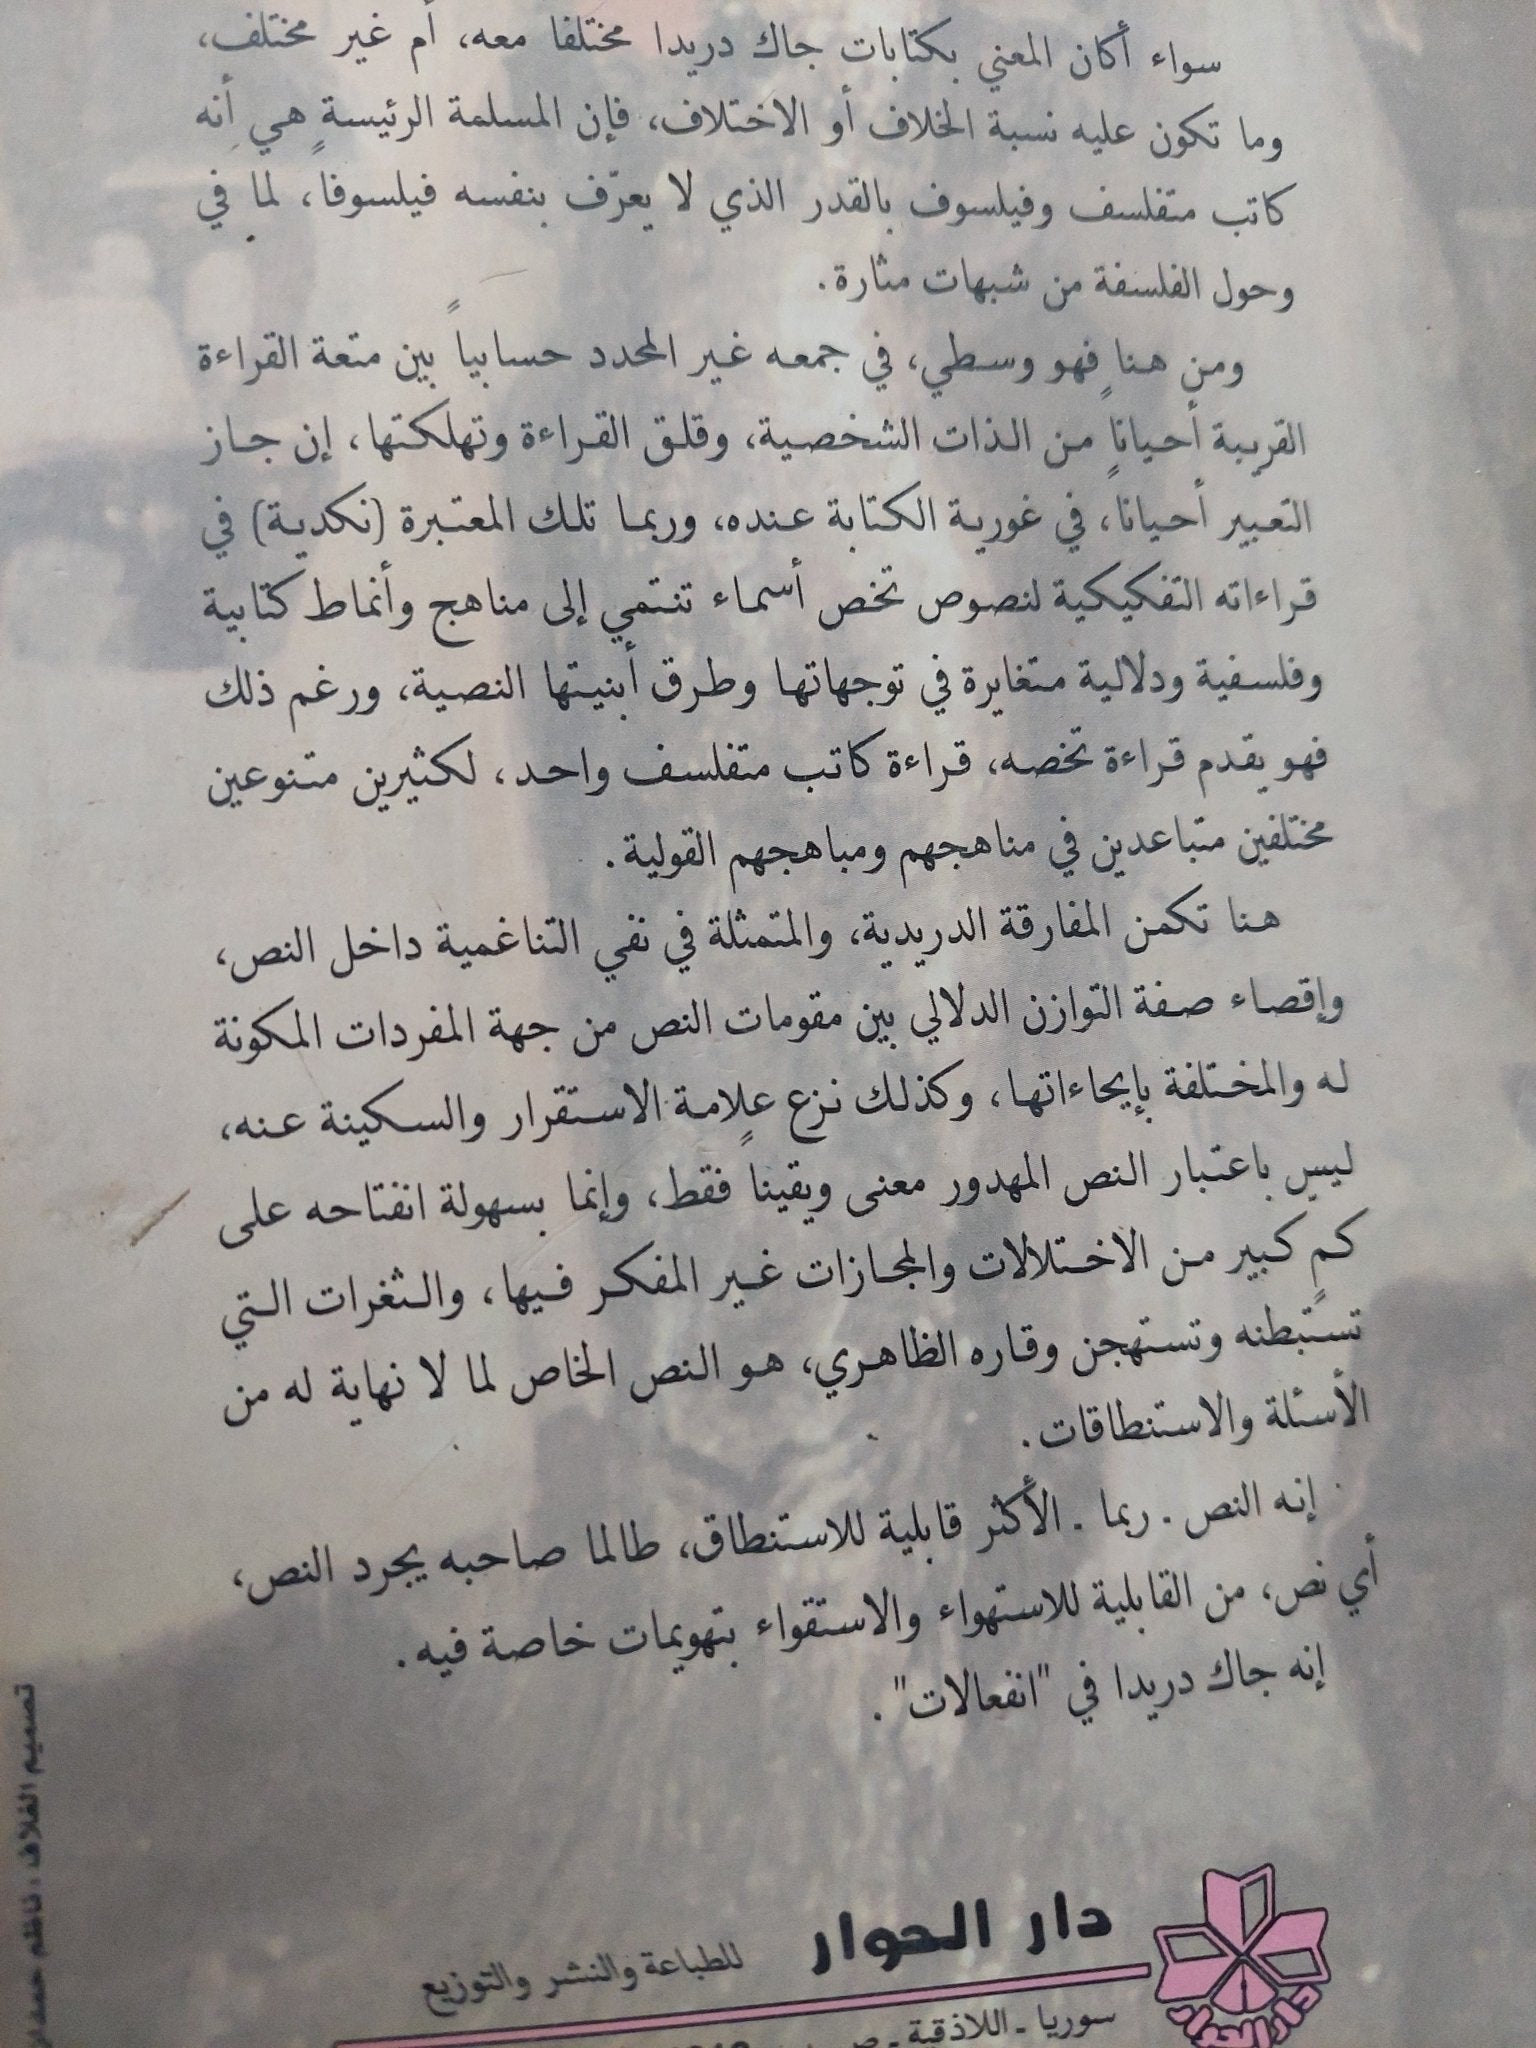 سواء أكان المعني بكتابات جاك دريدا مختلفا معه، أم غير مختلف،
وما تكون عليه نسبة الخلاف أو الاختلاف، فإن المسلمة الرئيسة هي أنه
كاتب متفلسف وفيلسوف بالقدر الذي لا يعرّف بنفسه فيلسوفاً، لما في
وحول الفلسفة من شبهات مثارة.
ومن هنا فهو وسطي، في جمعه غير المحدد حسابياً بين متعة القراءة
القريبة أحياناً من الذات الشخصية، وقلق القراءة وتهلكتها، إن جاز
التعبير أحياناً، في غورية الكتابة عنده، وربما تلك المعتبرة (نكدية) في
قراءاته التفكيكية لنصوص تخص أسماء تنتمي إلى مناهج وأنماط كتابية
وفلسفية ودلالية متغايرة في توجهاتها وطرق أبنيتها النصية، ورغم ذلك
فهو يقدم قراءة تخصه، قراءة كاتب متفلسف واحد، لكثيرين متنوعين
مختلفين متباعدين في مناهجهم ومباهجهم القولية.
هنا تكمن المفارقة الدريدية، والمتمثلة في نفي التناغمية داخل النص،
وإقصاء صفة التوازن الدلالي بين مقومات النص من جهة المفردات المكونة
له والمختلفة بإيحاءاتها، وكذلك نزع علامة الاستقرار والسكينة عنه،
ليس باعتبار النص المهدور معنى ويقيناً فقط، وإنما بسهولة انفتاحه على
كمٍ كبير من الاختلالات والمجازات غير المفكر فيها، والثغرات التي
تستبطنه وتستهجن وقاره الظاهري، هو النص الخاص لما لا نهاية له من
الأسئلة والاستنطاقات.
إنه النص - ربما - الأكثر قابلية للاستنطاق، طالما صاحبه يجرد النص،
أي نص، من القابلية للاستهواء والاستقواء بتهويمات خاصة فيه.
إنه جاك دريدا في "انفعالات".
دار الحوار للطباعة والنشر والتوزيع
سوريا - اللاذقية -
دار الحوار
تصميم الغلاف : ناظم حمدان